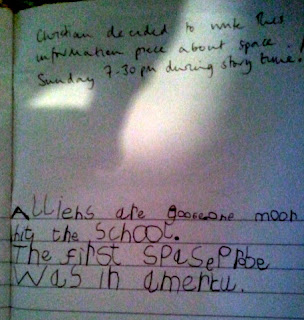 Christian decided to write this
information piece about space.
Sunday 7-30pm during story time.
Alliens are one moon
hit the School.
The first spaseprobe
was in